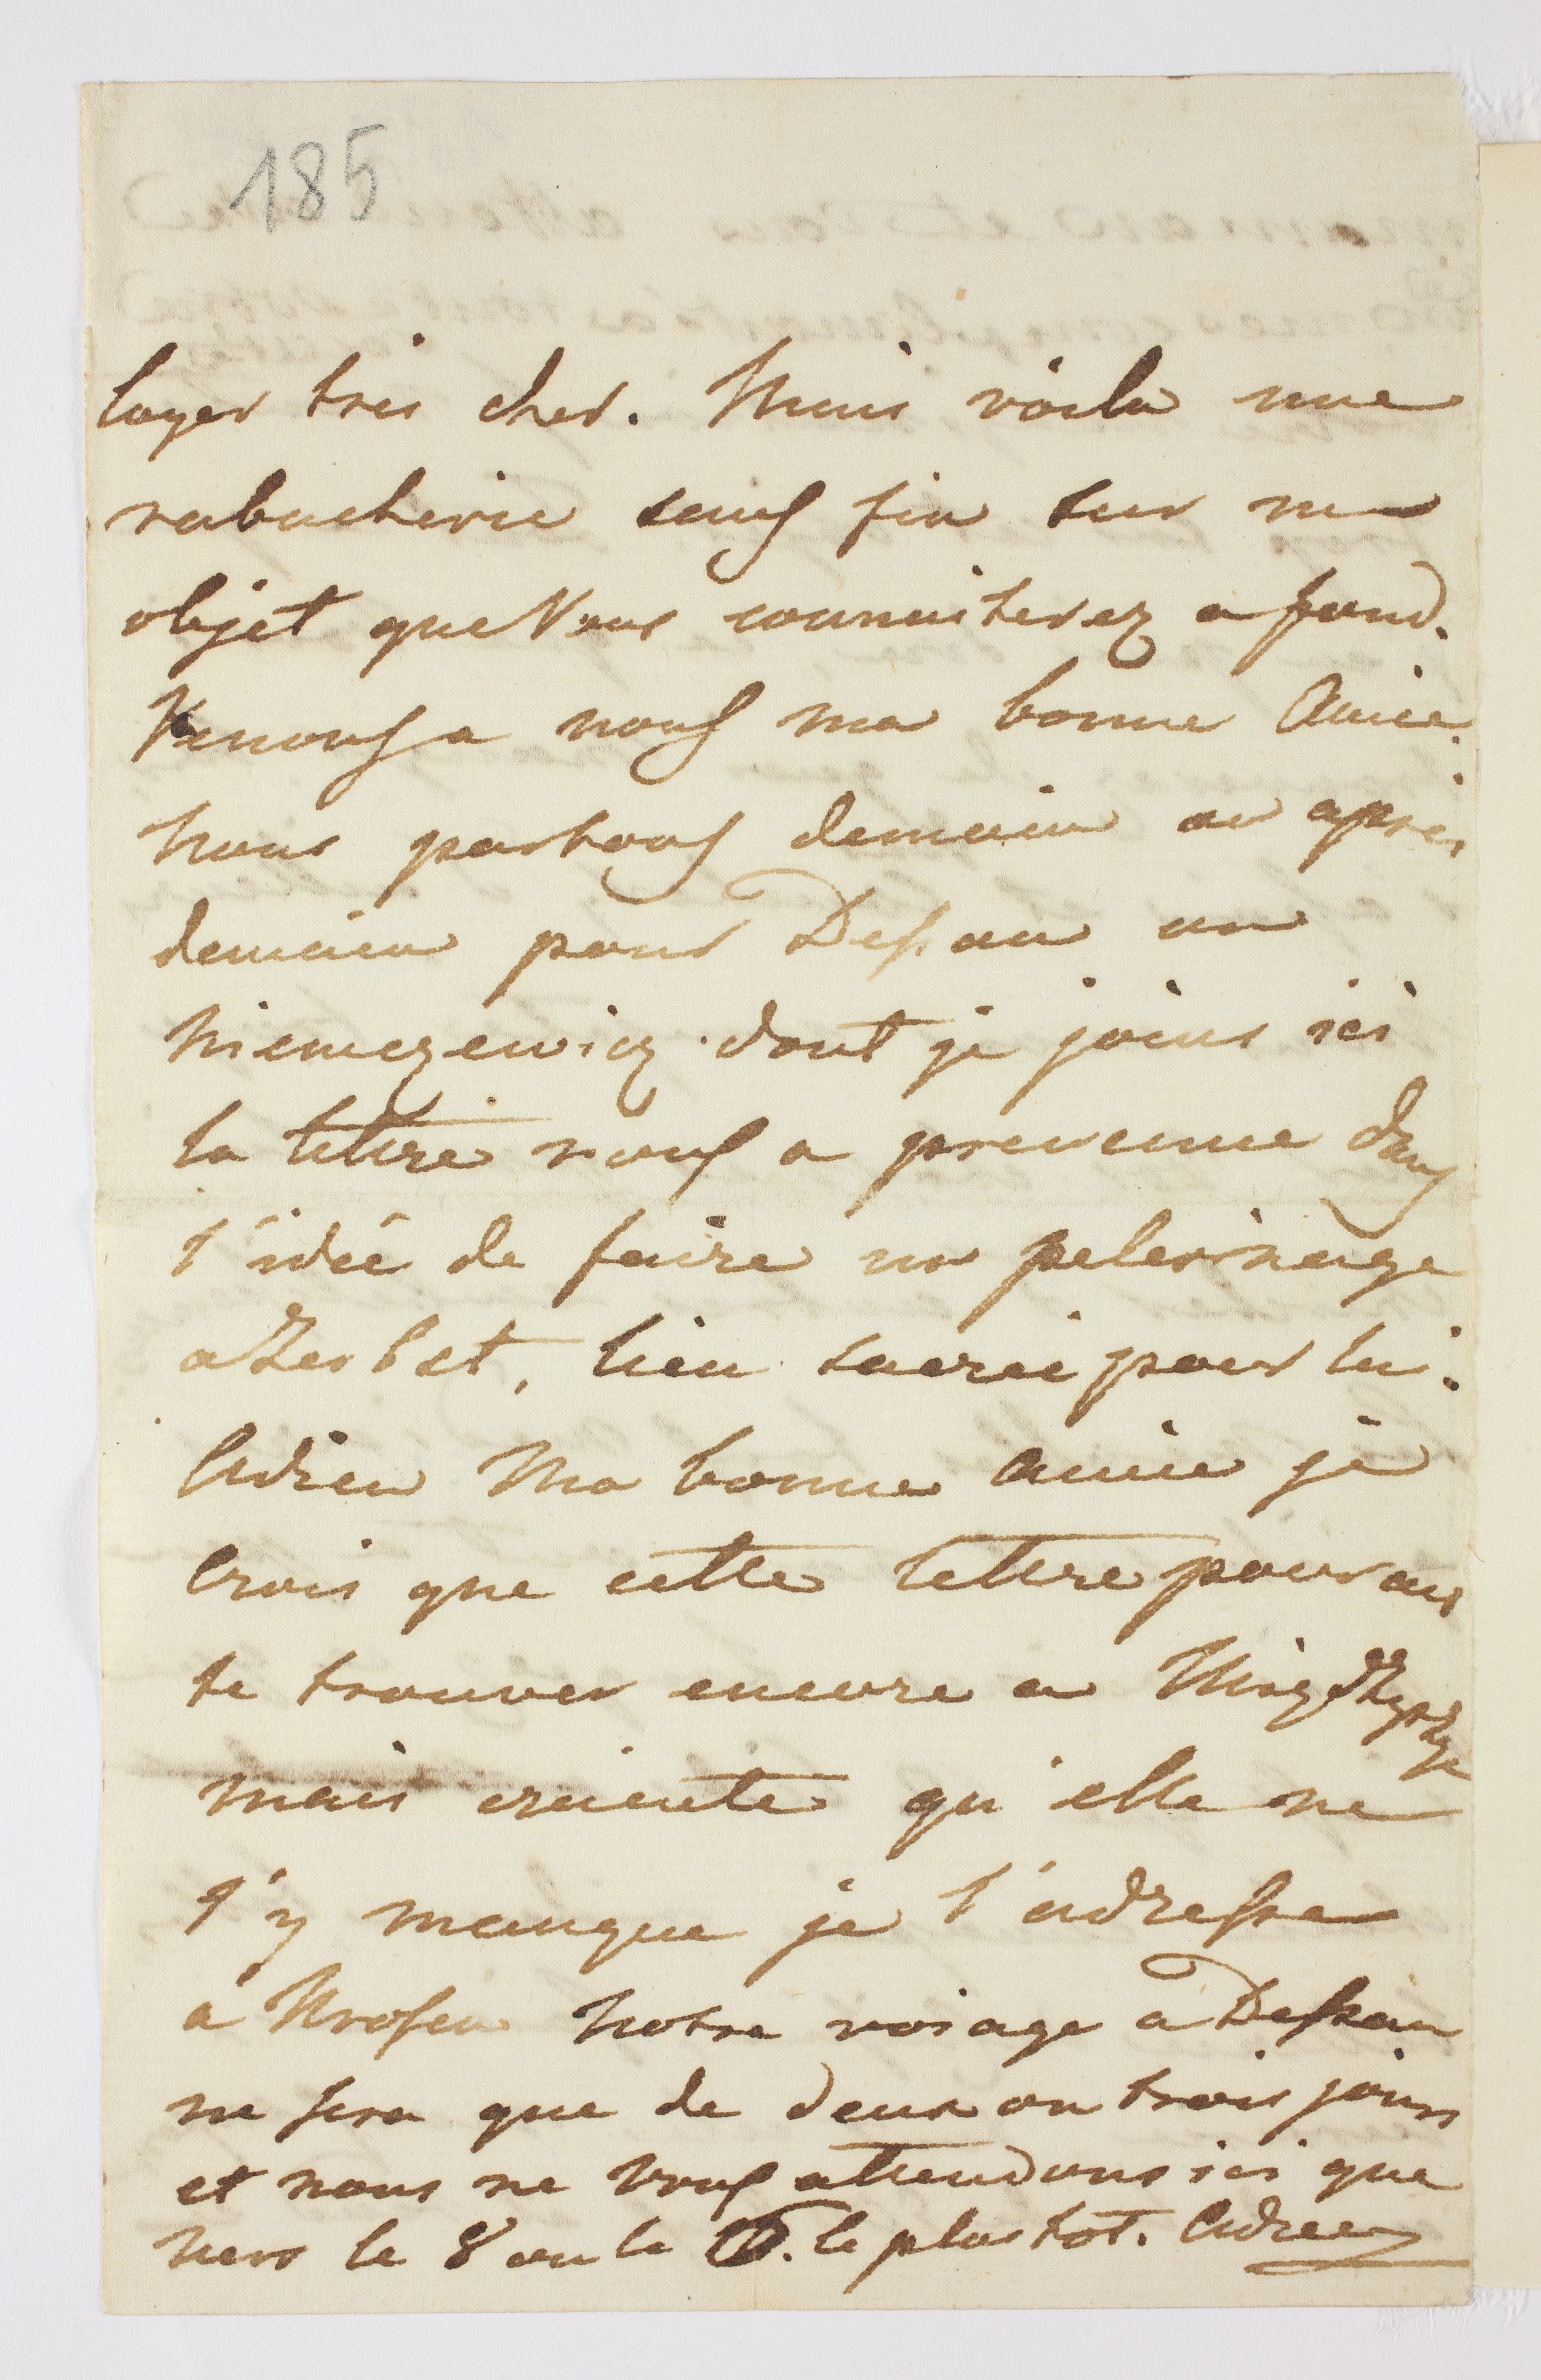 185
loyer tres cher. Mais voila une
rabacherie sans fin sur un
objet que Vous connaiterez a fond.
Venons a nous ma bonne Amie.
Nous partons demain ou apres
demain pour Dessau ou
Niemczewicz dont je joins ici
la lettre nous a prevenue dans
l'idée de faire un pelerinage
a Zerbst, lieu sacré pour lui.
Adieu Ma bonne amie je
crois que cette lettre pourai
te trouver encore a
mais crainte qu'elle ne
t'y manque je t'adresse
a notre voiage a Dessau
ne sera que de deux ou trois jours
et nous ne Vous attendons ici que
vers le 8 ou le le plus tot. Adieu